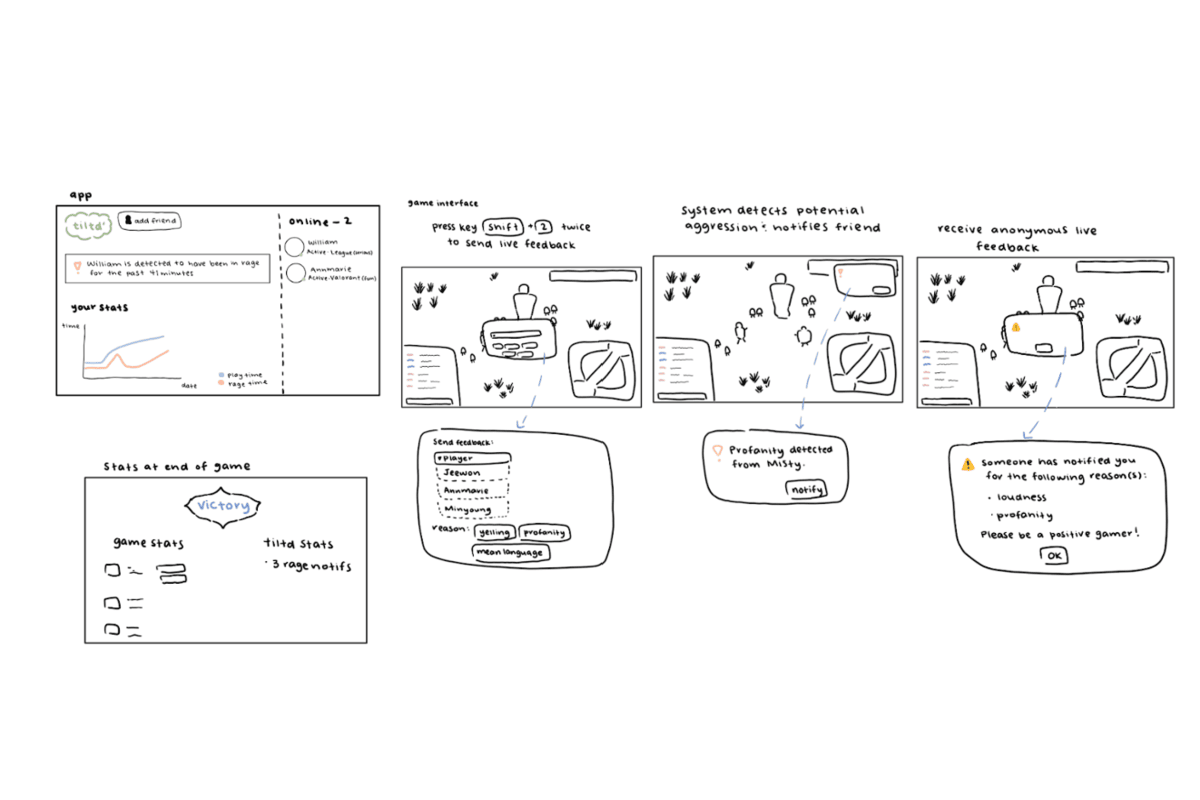 app
tiltd'
add friend
William is detected to have been in rage
for the past 41 minutes
your stats
time
date
play time
rage time
online - 2
William
Annmarie
Active - Valorant (fun)
stats at end of game
victory
game stats
tiltd stats
· 3 rage notifs
game interface
press key shift + 2 twice
to send live feedback
send feedback:
player
Jeewon
Annmarie
Minyoung
reason: yelling profanity
mean language
system detects potential
aggression : notifies friend
Profanity detected
from Misty.
notify
receive anonymous live
feedback
someone has notified you
for the following reason(s):
· loudness
· profanity
Please be a positive gamer!
OK